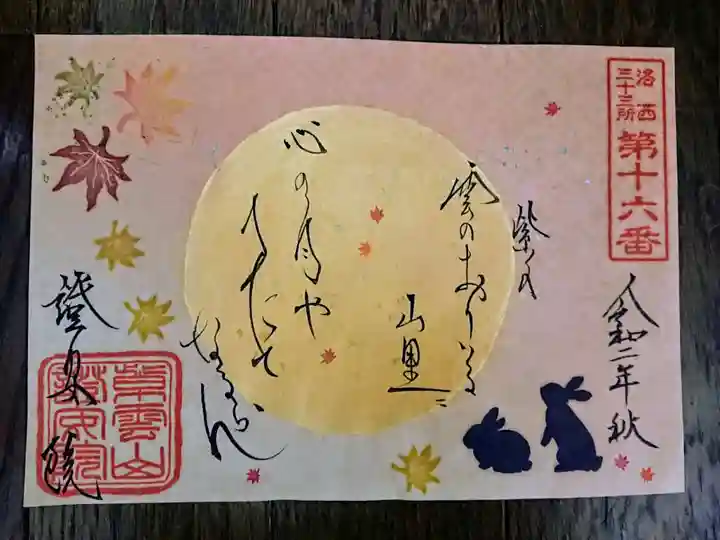 洛西
三十三所
第十六番
令和二年秋
紫の
雲のおりゐる
山里に
心の月や
へだて
なるらん
紫雲山